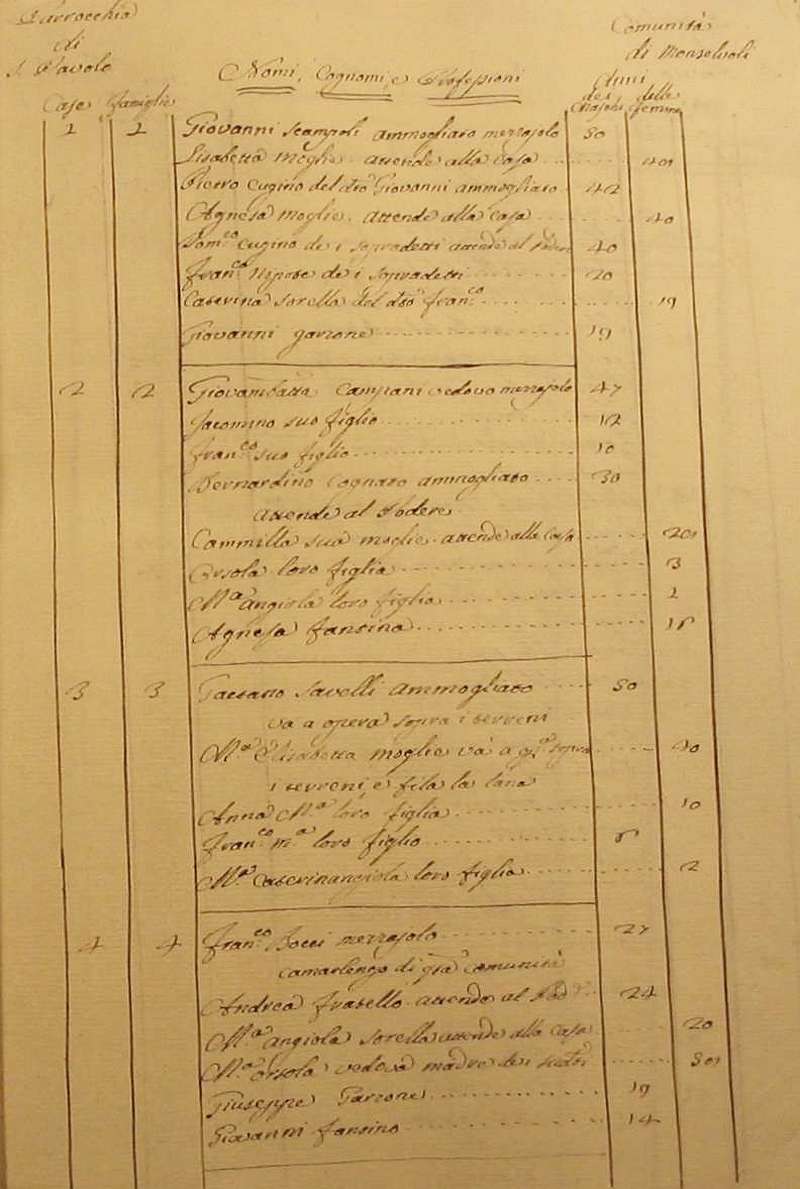 Parrocchia
di
S. Pavolo
Comunità
di Monselvoli
Nomi, Cognomi, e Professioni
Anni
dei Maschi delle femine
Case famiglie
1 1 Giovanni Scampoli ammogliato mezzajolo 50
Lisabetta Moglie attende alla casa
Pietro Cugino del dto Giovanni ammogliato 42
Agnesa moglie attende alla casa 40
Domco Cugino de i sopradetti attende al Podere 40
Franco Nipote de i sopradetti 20
Caterina sorella del dto Franco 19
Giovanni garzone 19
2 2 Giovambatta Campani vedovo mezzajolo 47
Jacomino suo figlio 12
Franco suo figlio 10
Bernardino Cognato ammogliato 30
attende al Podere
Cammilla sua moglie attende alla casa
Orsola loro figlia 3
Ma angiola loro figlia 1
Agnesa fantina
3 3 Gaetano Savelli ammogliato 50
va a opera sopra i terreni
Ma Elisabetta moglie va a sopra 40
i terreni, e fila la lana
Anna Ma loro figlia 10
Franco Ma loro figlio
Ma Caterinangiola loro figlia 2
4 4 Franco Bocci mezzajolo 27
camarlengo di comunità
Andrea fratello attende al Pode 24
Ma angiola sorella attende alla casa 20
Ma Orsola vedova madre dei
Giuseppe Garzone 19
Giovanni fantino 14